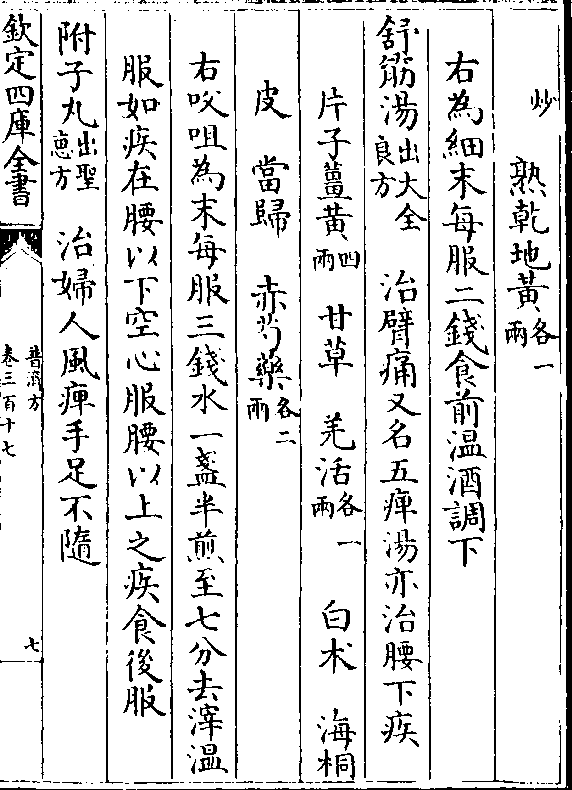 炒　熟乾地黃各一兩
右為細末每服二錢食前温酒調下
舒筋湯出大全良方　治臂痛又名五痺湯亦治腰下疾
片子薑黄四兩　甘草　羌活各一兩　白术　海桐
皮　當歸　赤芍藥各二兩
右㕮咀為末每服三錢水一盞半煎至七分去滓温
服如疾在腰以下空心服腰以上之疾食後服
附子丸出聖惠方　治婦人風痺手足不隨
欽定四庫全書　普濟方卷三百十七　七